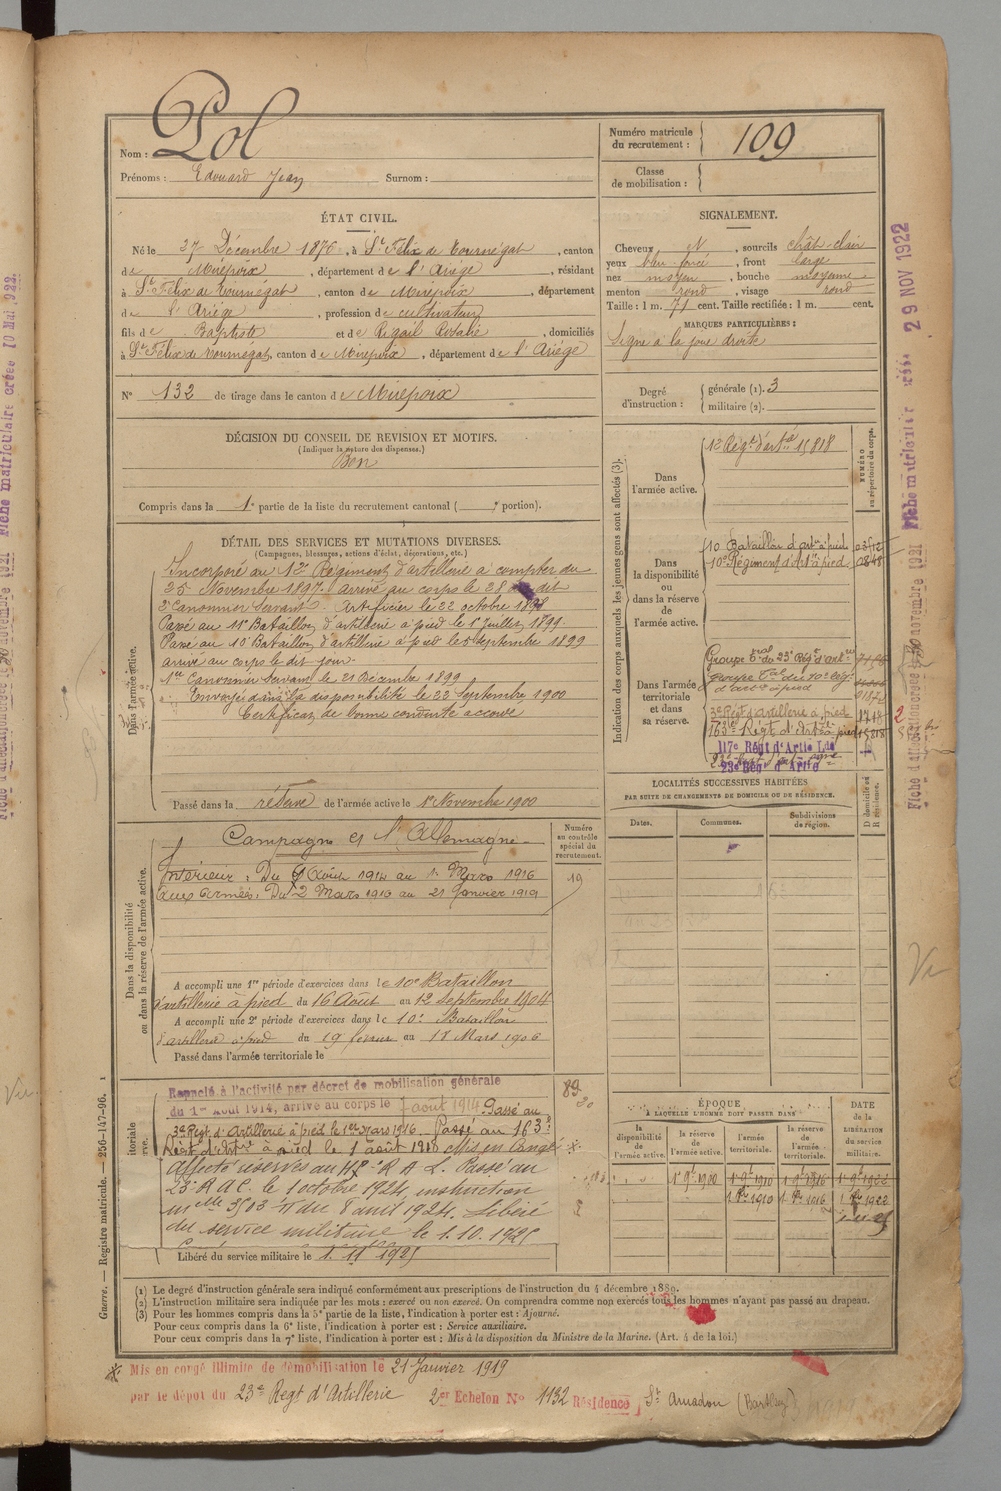 Nom : Pol
Prénoms : Edouard Jean Surnom :
Numéro matricule du recrutement : 109
Classe de mobilisation :
ÉTAT CIVIL.
Né le 27 Décembre 1876, à St Félix de Tournégat, canton
de Mirepoix, département de l'Ariège, résidant
à St Félix de Tournégat, canton de Mirepoix, département
de l'Ariège, profession de cultivateur
fils de Baptiste et de Rigail Rosalie, domiciliés
à St Félix de Tournégat, canton de Mirepoix, département de l'Ariège
N° 132 de tirage dans le canton de Mirepoix
SIGNALEMENT.
Cheveux N, sourcils chât-clair
yeux bleu-foncé, front large
nez moyen, bouche moyenne
menton rond, visage rond
Taille : 1 m. 71 cent. Taille rectifiée : 1 m. cent.
MARQUES PARTICULIÈRES :
Signe à la joue droite
Degré d'instruction : générale (1). 3
militaire (2).
DÉCISION DU CONSEIL DE REVISION ET MOTIFS.
(Indiquer la nature des dispenses.)
Bon
Compris dans la 1e partie de la liste du recrutement cantonal ( e portion).
DÉTAIL DES SERVICES ET MUTATIONS DIVERSES.
(Campagnes, blessures, actions d'éclat, décorations, etc.)
Dans l'armée active.
Incorporé au 12e Régiment d'artillerie à compter du
25 Novembre 1897. arrivé au corps le 28 dit
2e Canonnier Servant. Artificier le 22 octobre 1898
Passé au 11e Bataillon d'artillerie à pied le 1er Juillet 1899.
Passé au 10e Bataillon d'artillerie à pied le 5 septembre 1899
arrivé au corps le dit jour.
1er Canonnier Servant le 21 Décembre 1899
Envoyé dans la disponibilité le 22 Septembre 1900
Certificat de bonne conduite accordé
Passé dans la réserve de l'armée active le 1er Novembre 1900
Indication des corps auxquels les jeunes gens sont affectés (3).
NUMÉRO au répertoire du corps.
Dans l'armée active.
12 Régt d'artie 15818
Dans la disponibilité ou dans la réserve de l'armée active.
10 Bataillon d'artie à pied
10e Régiment d'Artie à pied
Dans l'armée territoriale et dans sa réserve.
Groupe tral du 23e Régt d'artie
Groupe tal du 10e Régt
d'artie à pied
3e Régt d'artillerie à pied 1718
163e Régt d'Artie à pied 15818
117e Régt d'Artie Lde
23e Régt d'Artie
LOCALITÉS SUCCESSIVES HABITÉES
PAR SUITE DE CHANGEMENTS DE DOMICILE OU DE RÉSIDENCE.
Dates. Communes. Subdivisions de région. D domicile ou R résidence.
Dans la disponibilité ou dans la réserve de l'armée active.
Numéro au contrôle spécial du recrutement.
Campagne et l'Allemagne
Intérieur : Du Août 1914 au 1er Mars 1916
aux Armées : Du 2 Mars 1916 au 21 Janvier 1919
19
A accompli une 1re période d'exercices dans le 10e Bataillon
d'artillerie à pied du 16 Août au 12 septembre 1904
A accompli une 2e période d'exercices dans le 10e Bataillon
d'artillerie à pied du 19 février au 18 Mars 1906
Passé dans l'armée territoriale le
Rappelé à l'activité par décret de mobilisation générale
du 1er Août 1914, arrivé au corps le août 1914. Passé au
3e Régt d'Artillerie à pied le 1er mars 1916. Passé au 163e
Régt d'Artie à pied le 1 août 1918 Mis en Congé
Affecté réserves au R A L. Passé au
23e R A C. le 1 octobre 1924, instruction
du 8 avril 1924. Libéré
du service militaire le 1.10.192
Libéré du service militaire le 1. 11 192
ÉPOQUE
À LAQUELLE L'HOMME DOIT PASSER DANS
la disponibilité de l'armée active. la réserve de l'armée active. l'armée territoriale. la réserve de l'armée territoriale.
DATE de la LIBÉRATION du service militaire.
1er 9bre 1900 1er 9bre 1910 1 9bre 1916 1er 9bre 1922
1 8bre 1910 1 8bre 1916 1 8bre 1922
(1) Le degré d'instruction générale sera indiqué conformément aux prescriptions de l'instruction du 4 décembre 1889.
(2) L'instruction militaire sera indiquée par les mots : exercé ou non exercé. On comprendra comme non exercés tous les hommes n'ayant pas passé au drapeau.
(3) Pour les hommes compris dans la 5e partie de la liste, l'indication à porter est : Ajourné.
Pour ceux compris dans la 6e liste, l'indication à porter est : Service auxiliaire.
Pour ceux compris dans la 7e liste, l'indication à porter est : Mis à la disposition du Ministre de la Marine. (Art. 4 de la loi.)
Mis en congé illimité de démobilisation le 21 Janvier 1919
par le dépôt du 23e Regt d'Artillerie 2er Echelon N° 1132 Résidence St Amadou
Guerre. — Registre matricule. — 256-147-96. 1
29 NOV 1922